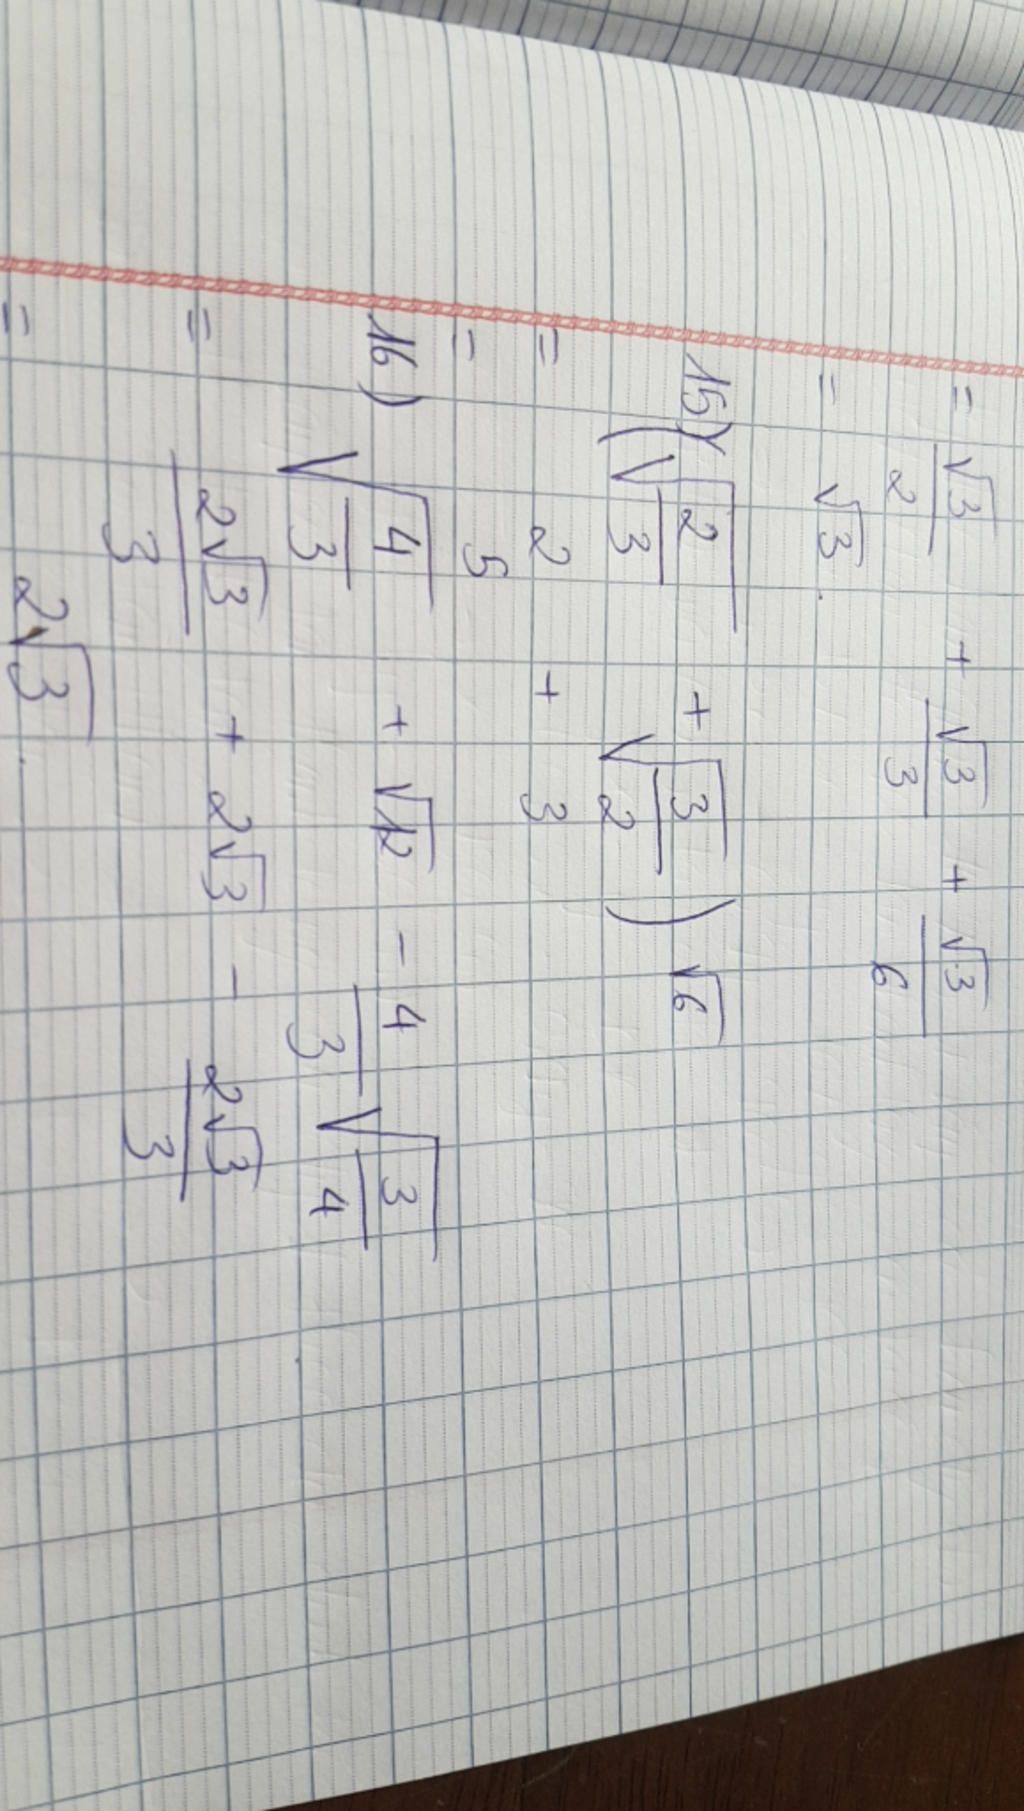 = √3/2 + √3/3 + √3/6
= √3.
15) (√(2/3) + √(3/2)) √6
= 2 + 3
= 5
16) √(4/3) + √12 - 4/3 √(3/4)
= 2√3/3 + 2√3 - 2√3/3
= 2√3.